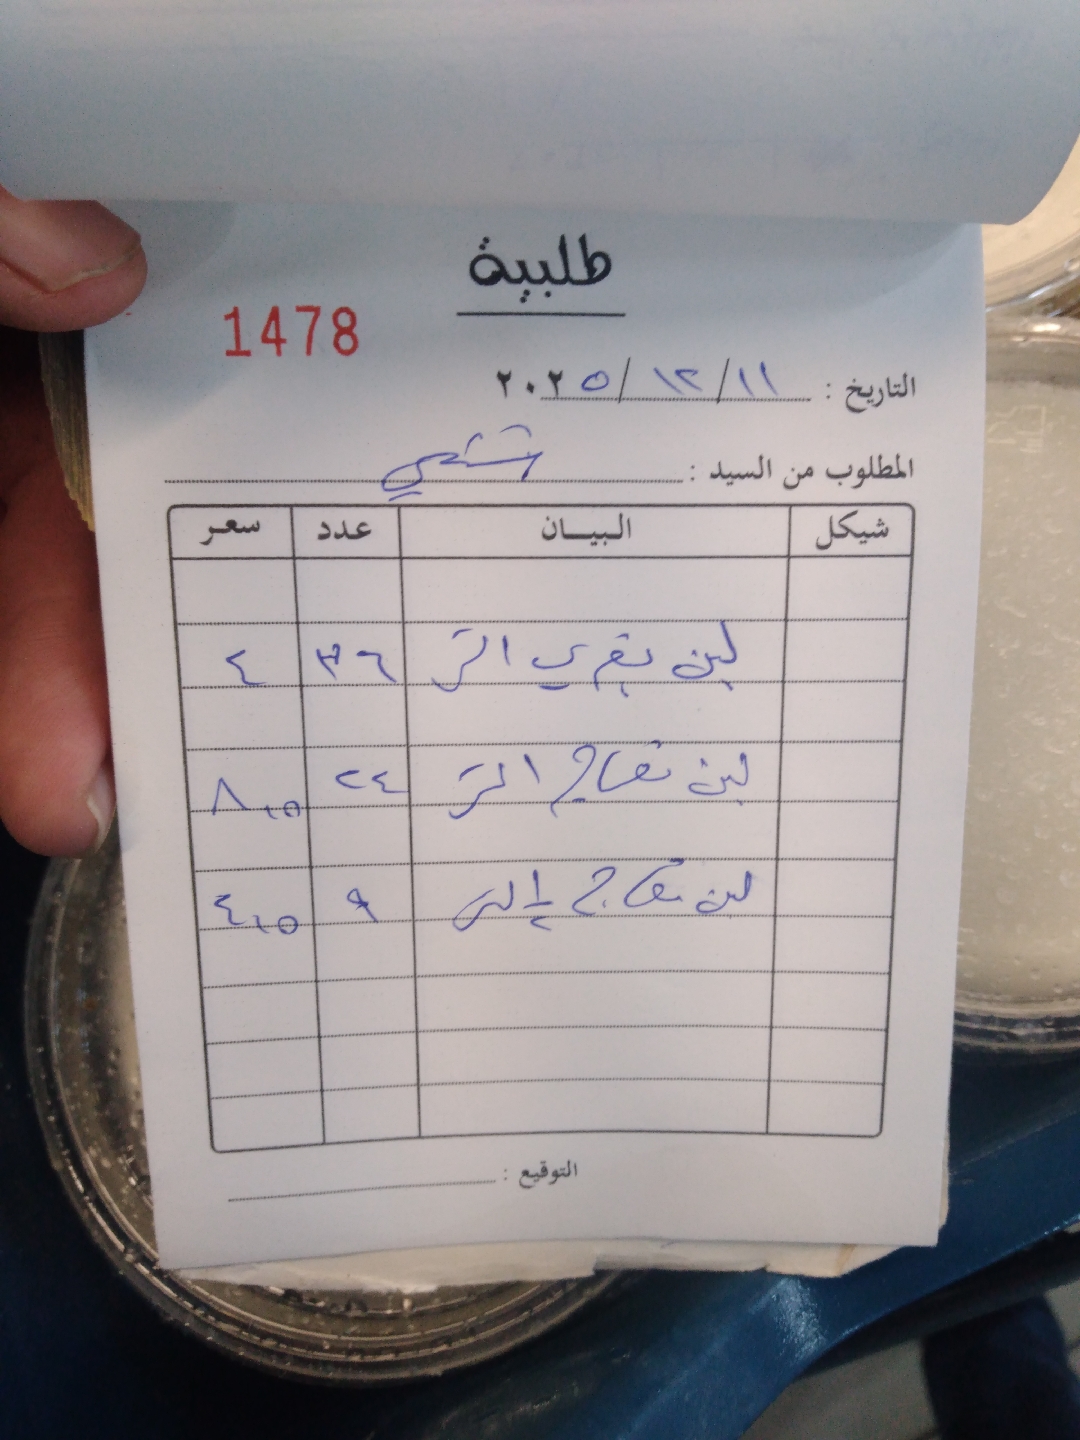 طلبية
1478
التاريخ : ١١/ ١٢ /٢٠٢٥
المطلوب من السيد :
شيكل البيـــان عدد سعر
لبن بقري ١ لتر ٣٦ ٤
لبن نعاج ١ لتر ٢٤ ٨,٥
لبن نعاج ½ لتر ٩ ٤,٥
التوقيع :